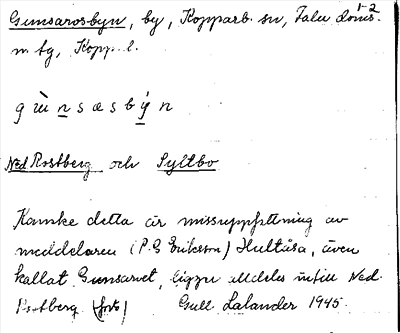 1-2
Gunsarosbyn, by, Kopparb. sn, Falu doms.
m tg, Kopp. l.
g ù n s æ s b ý n
Ned Rostberg och Syltbo
Kanske detta är missuppfattning av
meddelaren (P.G Erikson) Hultåsa, även
kallat Gunsarvet, ligger alldeles intill Ned.
Rostberg
Gull. Lalander 1945.